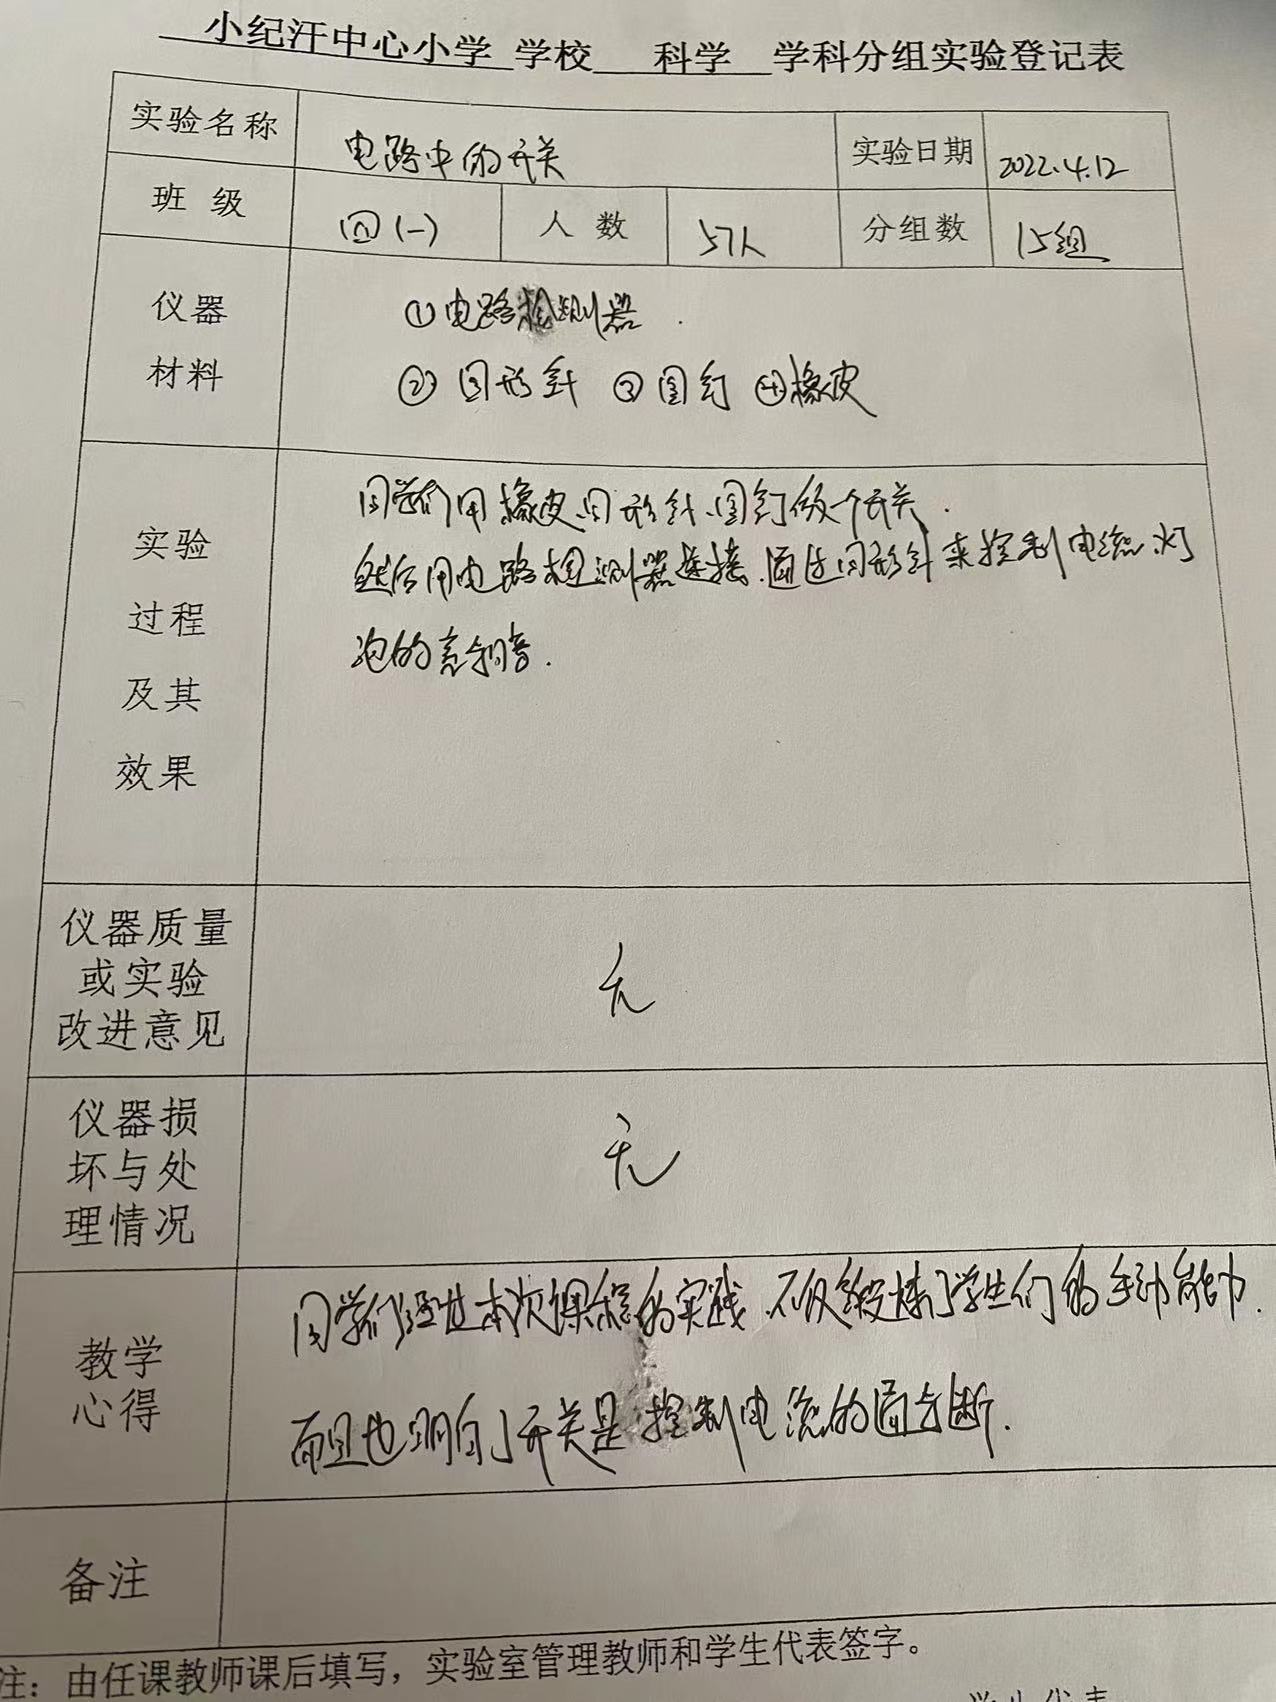 小纪汗中心小学 学校 科学 学科分组实验登记表
实验名称 电路中的开关 实验日期 2022.4.12
班级 四(一) 人数 57人 分组数 15组
仪器
材料
①电路检测器.
②回形针 ③图钉 ④橡皮
实验
过程
及其
效果
同学们用橡皮、回形针、图钉做一个开关.
然后用电路检测器连接.通过回形针来控制电流.灯
泡的亮和否.
仪器质量
或实验
改进意见
无
仪器损
坏与处
理情况
无
教学
心得
同学们经过本次课程的实践.不仅锻炼了学生们的手动能力.
而且也明白了开关是控制电流的通与断.
备注
注：由任课教师课后填写，实验室管理教师和学生代表签字。
学生代表